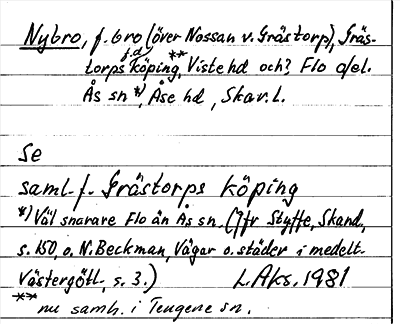 Nybro, f. bro (över Nossan v. Grästorp), Gräs-
torps f.d. köping,** Viste hd och? Flo o/el.
Ås sn *), Åse hd, Skar. l.
Se
saml. f. Grästorps köping
*) Väl snarare Flo än Ås sn. (Jfr Styffe, Skand.
s. 150, o. N. Beckman, Vägar o. städer i medelt.
Västergötl., s. 3.) L. Aks. 1981
** nu samh. i Tengene sn.